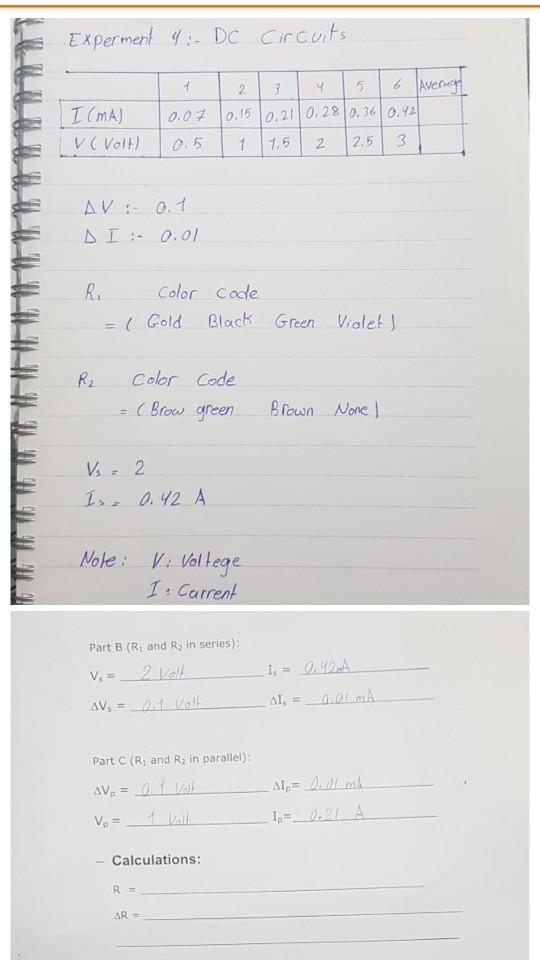 Experment 4:- DC Circuits
1 2 3 4 5 6 Average
I (mA) 0.07 0.15 0.21 0.28 0.36 0.42
V (Volt) 0.5 1 1.5 2 2.5 3
ΔV :- 0.1
Δ I :- 0.01
R₁ Color Code
= ( Gold Black Green Violet )
R₂ Color Code
= ( Brow green Brown None )
Vs = 2
Is = 0.42 A
Note : V : Voltege
I : Current
Part B (R₁ and R₂ in series):
Vs = 2 Volt Is = 0.42mA
ΔVs = 0.1 Volt ΔIs = 0.01 mA
Part C (R₁ and R₂ in parallel):
ΔVp = 0.1 Volt ΔIp= 0.01 mA
Vp = 1 Volt Ip= 0.21 A
– Calculations:
R =
ΔR =